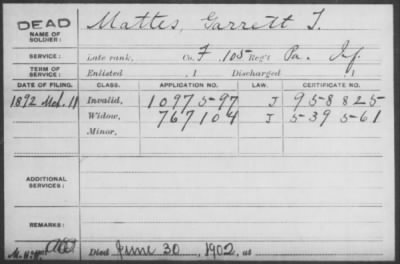 DEAD
NAME OF SOLDIER: Mattes, Garrett T.
SERVICE: Late rank, Co. F, 105 Reg't Pa. Inf.
TERM OF SERVICE: Enlisted , 1 Discharged , 1
DATE OF FILING. CLASS. APPLICATION NO. LAW. CERTIFICATE NO.
1892 Mch. 11 Invalid, 1097597 J 958825
Widow, 767104 J 539561
Minor,
ADDITIONAL SERVICES:
REMARKS:
Died June 30, 1902, at